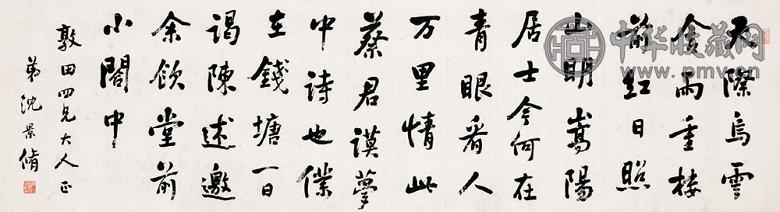 天際烏雲
含雨重樓
前紅日照
山明嵩陽
居士今何在
青眼看人
万里情此
蔡君謨夢
中詩也僕
在錢塘一日
謁陳述邀
余飲堂前
小閣中
敦田四兄大人正
弟沈景脩
中华收藏网